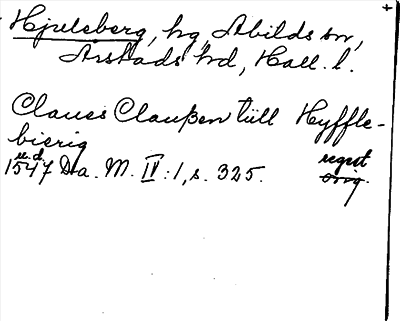 +
Hjulsberg, hg, Abilds sn,
Årstads hd, Hall. l.
Clauss Claußen tüll Hyffle-
bierig
u.d.
1547 Da. M. IV:1, s. 325. regest
orig.